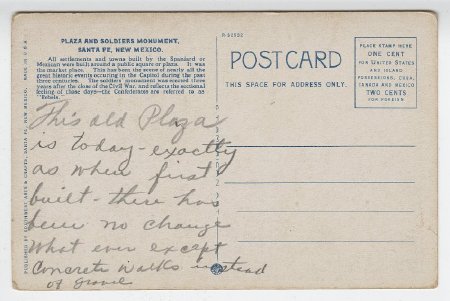 PLAZA AND SOLDIERS MONUMENT,
SANTA FE, NEW MEXICO.
All settlements and towns built by the Spaniard or
Mexican were built around a public square or plaza. It
was the market place. This has been the scene of nearly all the
great historic events occuring in the Capitol during the past
three centuries. The soldiers' monument was erected three
years after the close of the Civil War, and reflects the sectional
feeling of those days—the Confederates are referred to as
"Rebels."
This old Plaza
is today - exactly
as when first
built - there has
been no change
What ever except
Concrete walks instead
of gravel
PUBLISHED BY SOUTHWEST ARTS & CRAFTS, SANTA FE, NEW MEXICO. MADE IN U.S.A.
POST CARD
THIS SPACE FOR ADDRESS ONLY.
PLACE STAMP HERE
ONE CENT
FOR UNITED STATES
AND ISLAND
POSSESSIONS, CUBA,
CANADA AND MEXICO
TWO CENTS
FOR FOREIGN